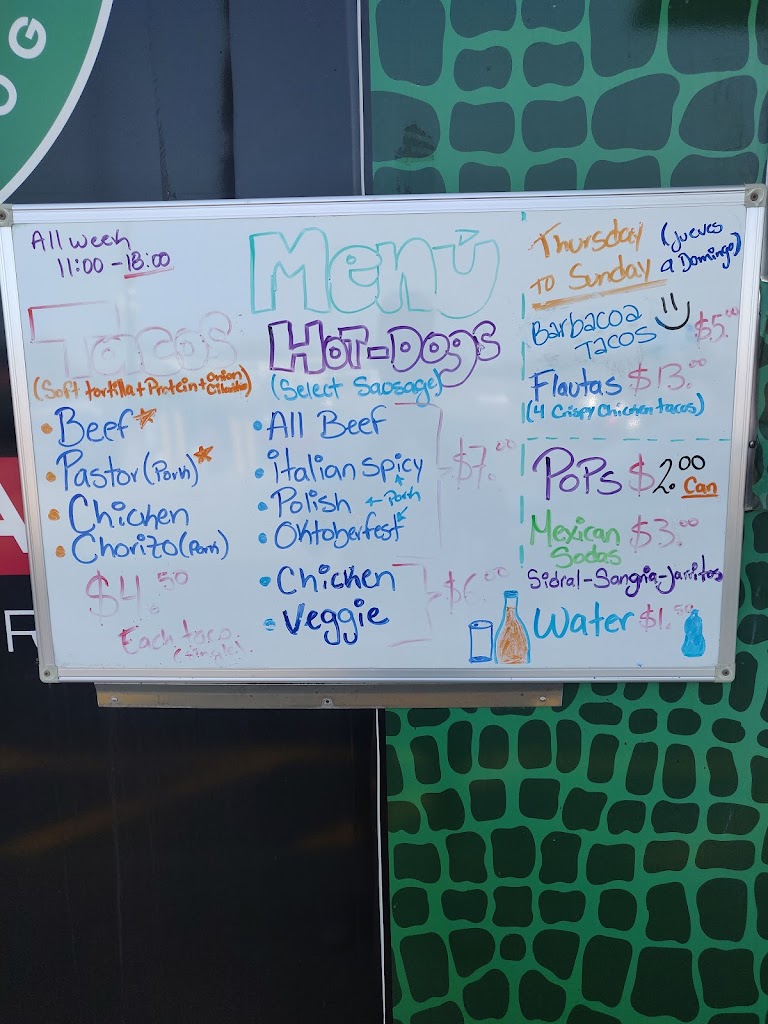 G
O
All week
11:00 - 18:00
Menú
Tacos
(Soft tortilla + Protein + Onion Cilantro)
Beef
Pastor (Pork)
Chicken
Chorizo (Pork)
$4.50
Each taco
(single)
Hot-Dogs
(Select Sausage)
All Beef
Italian Spicy
Polish ← Pork
Oktoberfest
$7.00
Chicken
Veggie
$6.00
Thursday
to Sunday
(Jueves
a Domingo)
Barbacoa
Tacos
$5.00
Flautas $13.00
(4 Crispy Chicken tacos)
Pops $2.00
Can
Mexican
Sodas
$3.00
Sidral-Sangria-Jarritos
Water $1.50
A
R